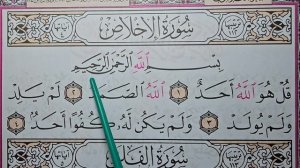 سُورَةُ الإِخْلَاصِ
بِسْمِ اللَّهِ الرَّحْمَٰنِ الرَّحِيمِ
قُلْ هُوَ اللَّهُ أَحَدٌ ١ اللَّهُ الصَّمَدُ ٢ لَمْ يَلِدْ
وَلَمْ يُولَدْ ٣ وَلَمْ يَكُن لَّهُ كُفُوًا أَحَدٌ ٤
سُورَةُ الْفَلَقِ